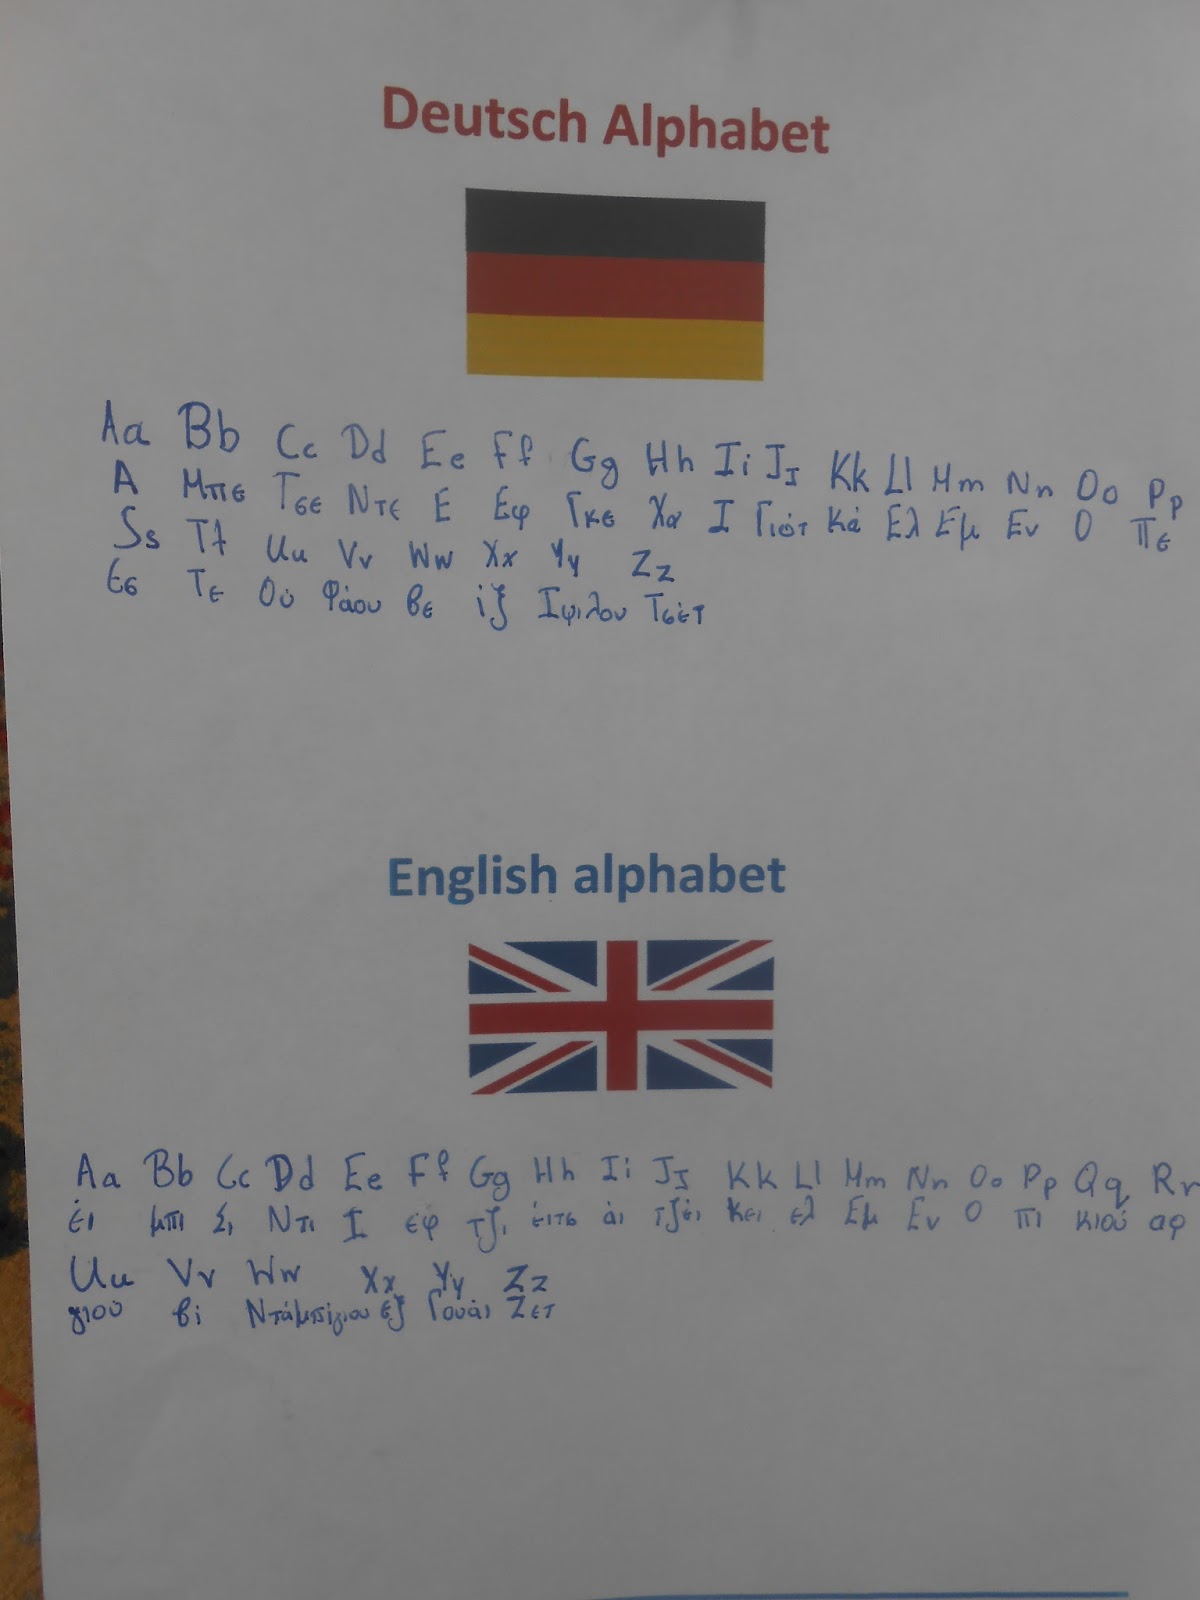 Deutsch Alphabet
Aa Bb Cc Dd Ee Ff Gg Hh Ii Jj Kk Ll Mm Nn Oo Pp
Α Μπε Τσε Ντε Ε Εφ Γκε Χα Ι Γιότ Κά Ελ Εμ Εν Ο Πε
Ss Tt Uu Vv Ww Xx Yy Zz
Ες Τε Ού Φάου βε ίξ Ιψιλον Τσέτ
English alphabet
Aa Bb Cc Dd Ee Ff Gg Hh Ii Jj Kk Ll Mm Nn Oo Pp Qq Rr
έι μπι Σι Ντι Ι εφ τζι έιτς άι τζέι κει ελ Εμ Εν Ο πι κιού αρ
Uu Vv Ww Xx Yy Zz
γιού βι Ντάμπλγιου εξ Γουάι Ζετ